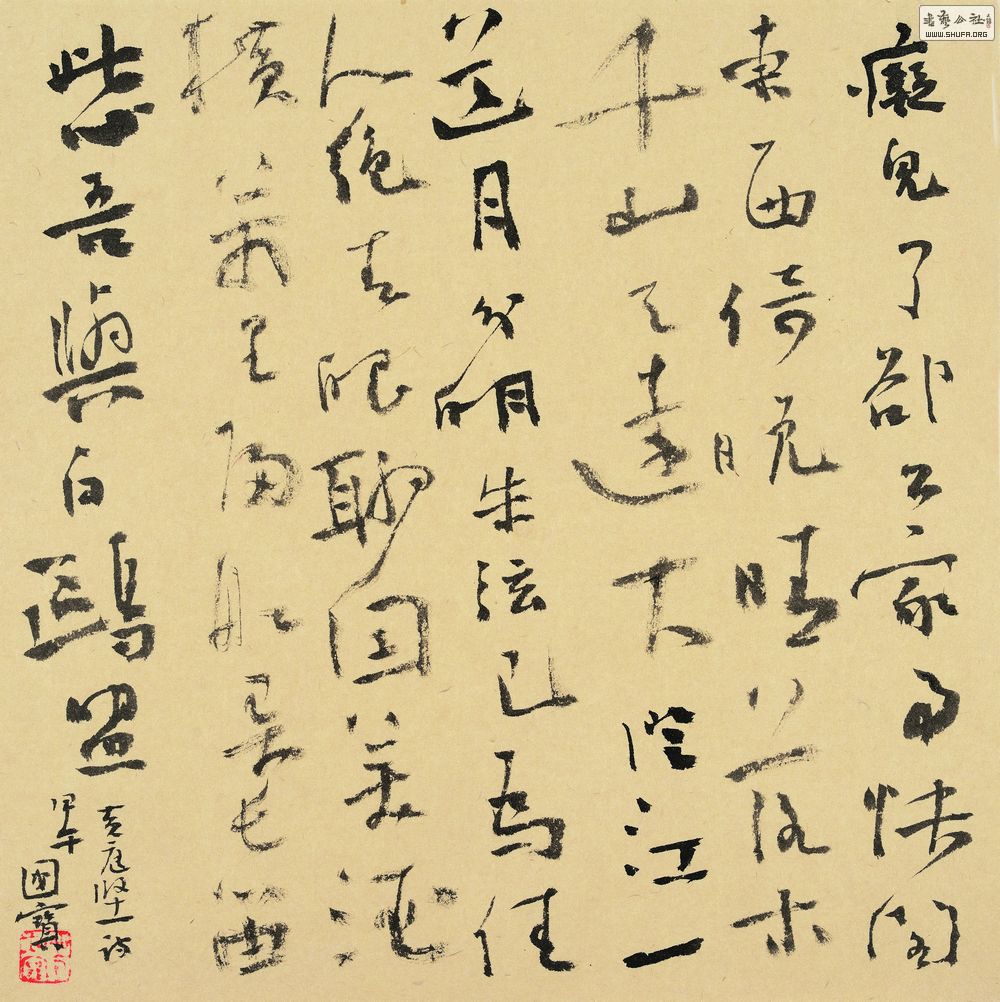 癡兒了卻公家事快閣
東西倚晚晴落木
千山天遠大澄江一
道月分明朱弦已為佳
人絕青眼聊因美酒
橫萬里歸船弄長笛
此心吾與白鷗盟
黃庭堅詩
甲午 國寶
書藝公社
WWW.SHUFA.ORG